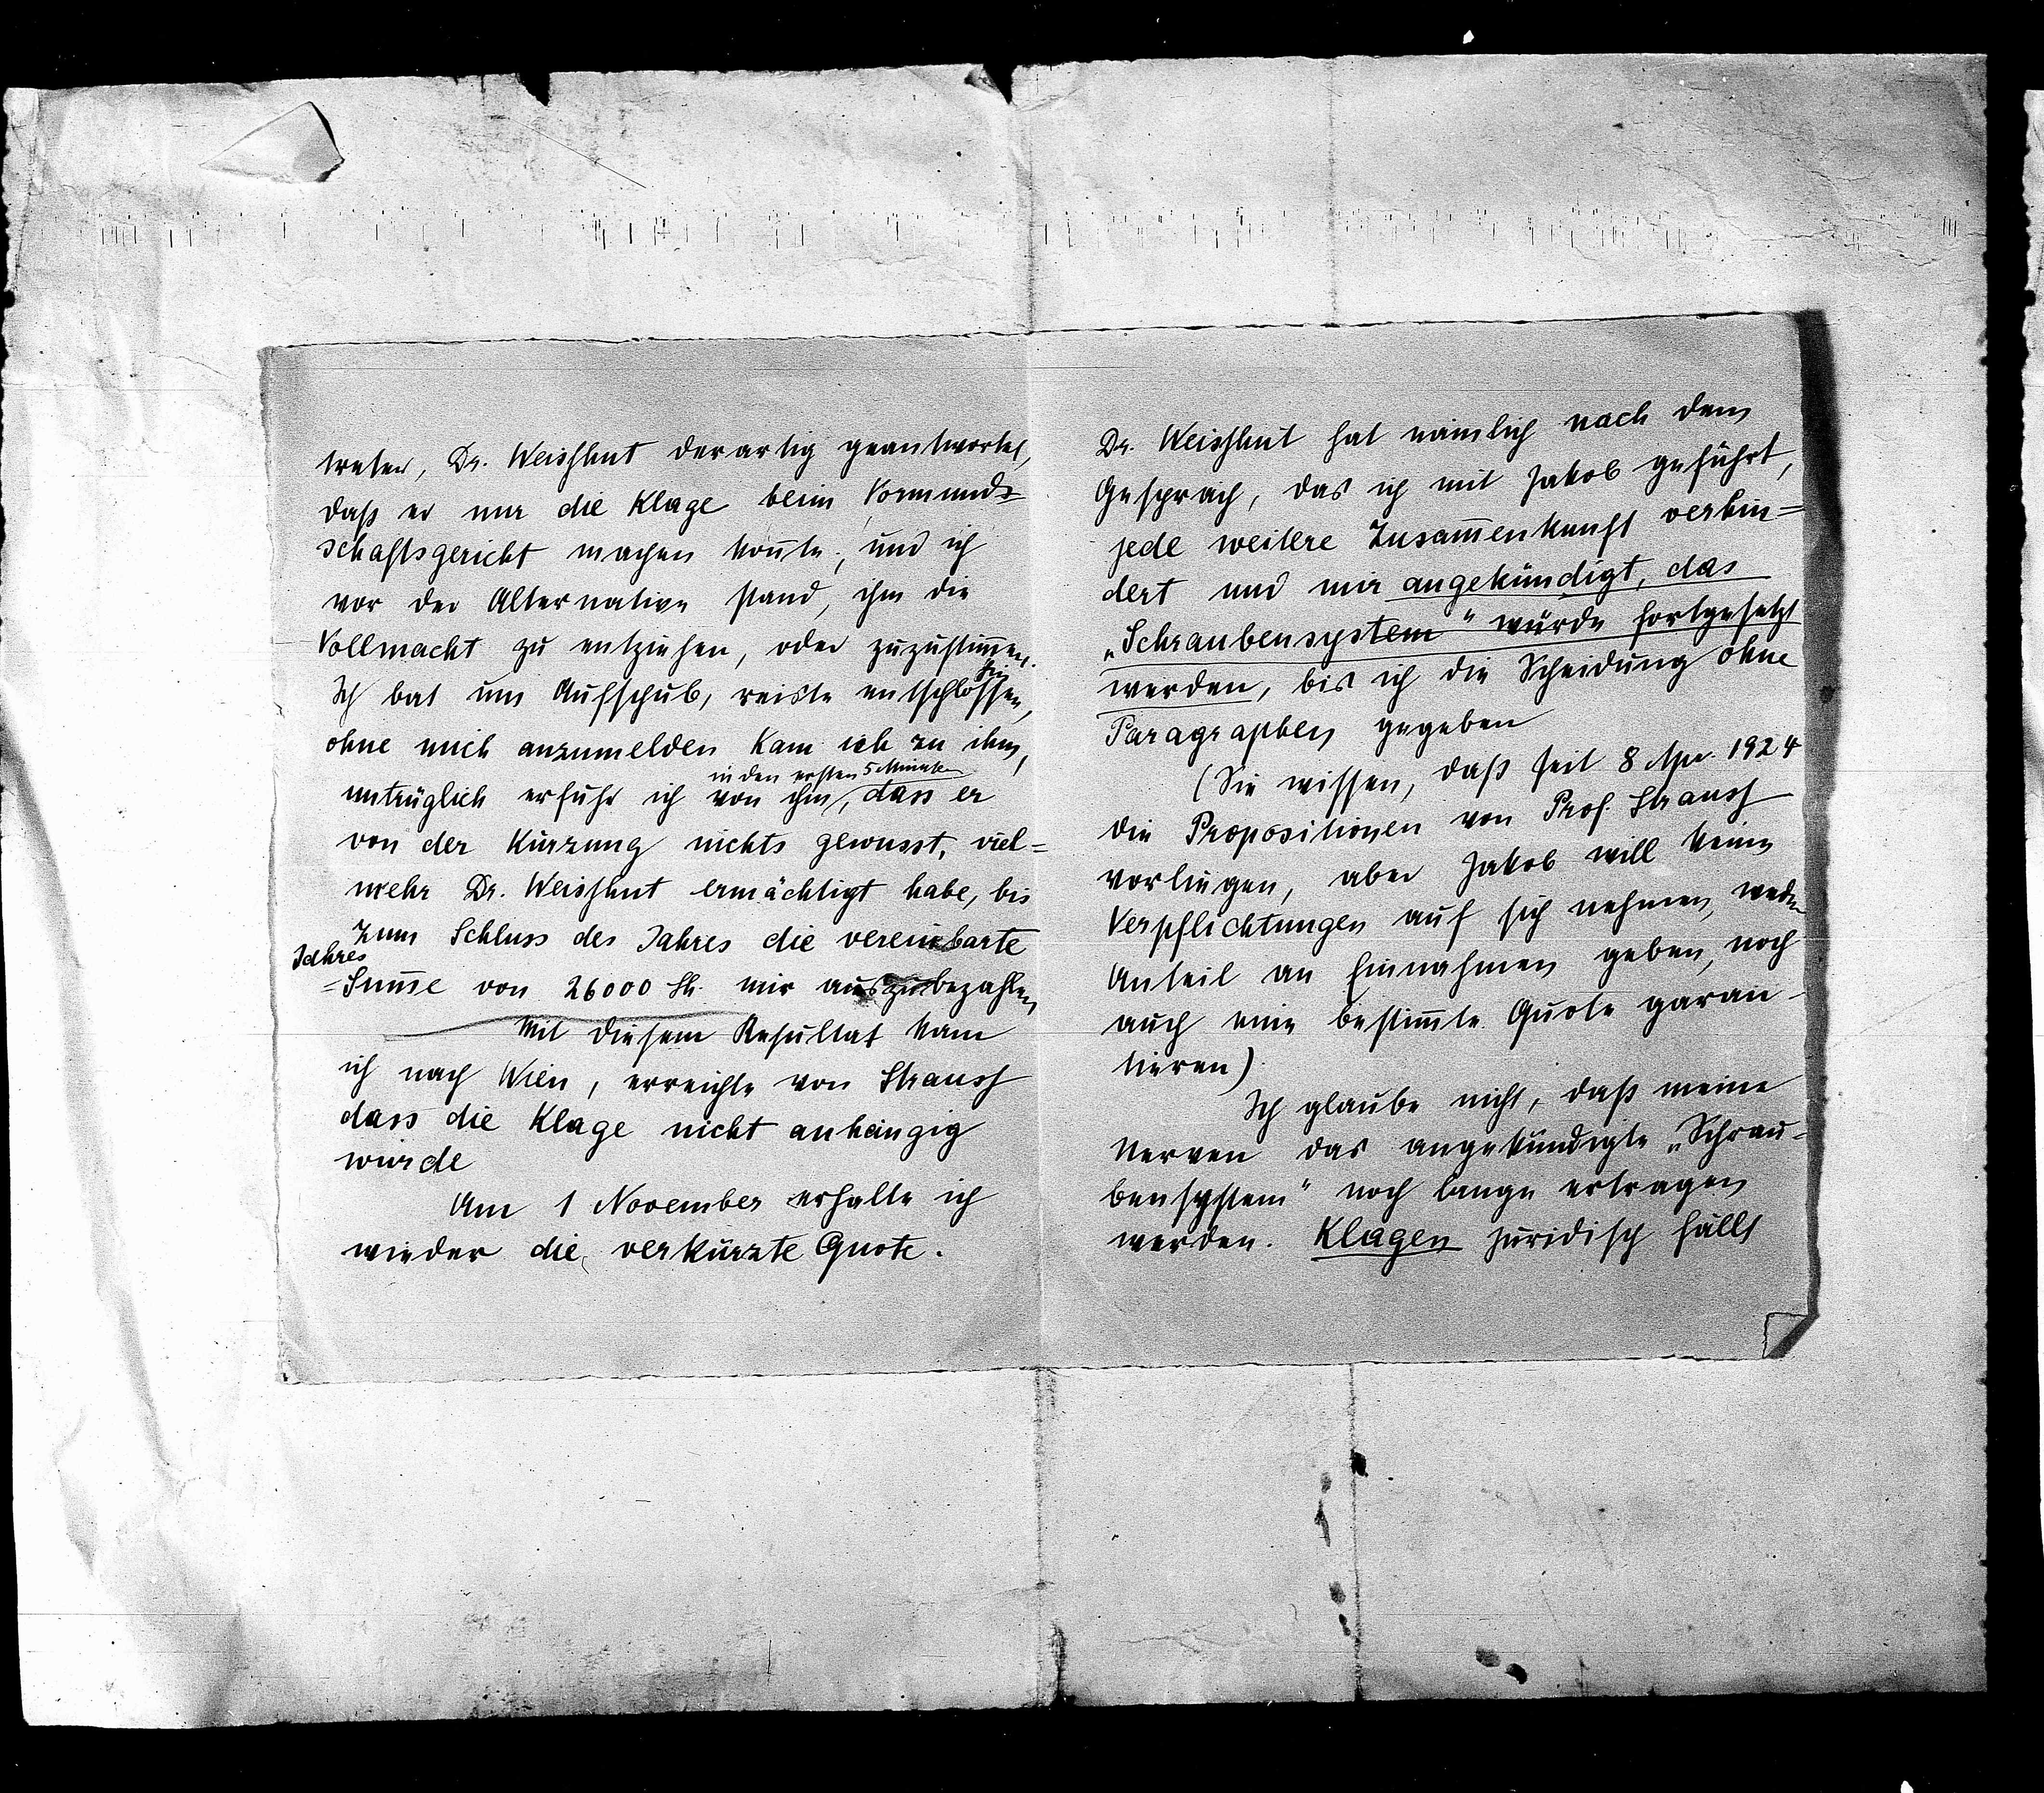 treten, Dr. Weisshut derartig geantwortet,
daß er nur die Klage beim Vormund-
schaftsgericht machen konnte, und ich
vor der Alternative stand, ihm die
Vollmacht zu entziehen, oder zuzustimmen.
Ich bat um Aufschub, reiste entschlossen,
ohne mich anzumelden kam ich zu ihm,
in den ersten 5 Minuten
untrüglich erfuhr ich von ihm, dass er
von der Kürzung nichts gewusst, viel=
mehr Dr. Weisshut ermächtigt habe, bis
zum Schluss des Jahres die vereinbarte
Jahres
=Summe von 26000 Sh. mir auszubezahlen
Mit diesem Resultat kam
ich nach Wien, erreichte von Strauss
dass die Klage nicht anhängig
würde
Am 1 November erhalte ich
wieder die verkürzte Quote.
Dr. Weisshut hat nämlich nach dem
Gespräch, das ich mit Jakob geführt,
jede weitere Zusammenkunft verhin=
dert und mir angekündigt, das
„Schraubensystem" würde fortgesetzt
werden, bis ich die Scheidung ohne
Paragraphen gegeben
(Sie wissen, daß seit 8 Apr. 1924
die Propositionen von Prof. Strauss
vorliegen, aber Jakob will keine
Verpflichtungen auf sich nehmen, weder
Anteil an Einnahmen geben, noch
auch eine bestimmte Quote garan-
tieren)
Ich glaube nicht, daß meine
Nerven das angekündigte „Schrau=
bensystem" noch lange ertragen
werden. Klagen juridisch fällt